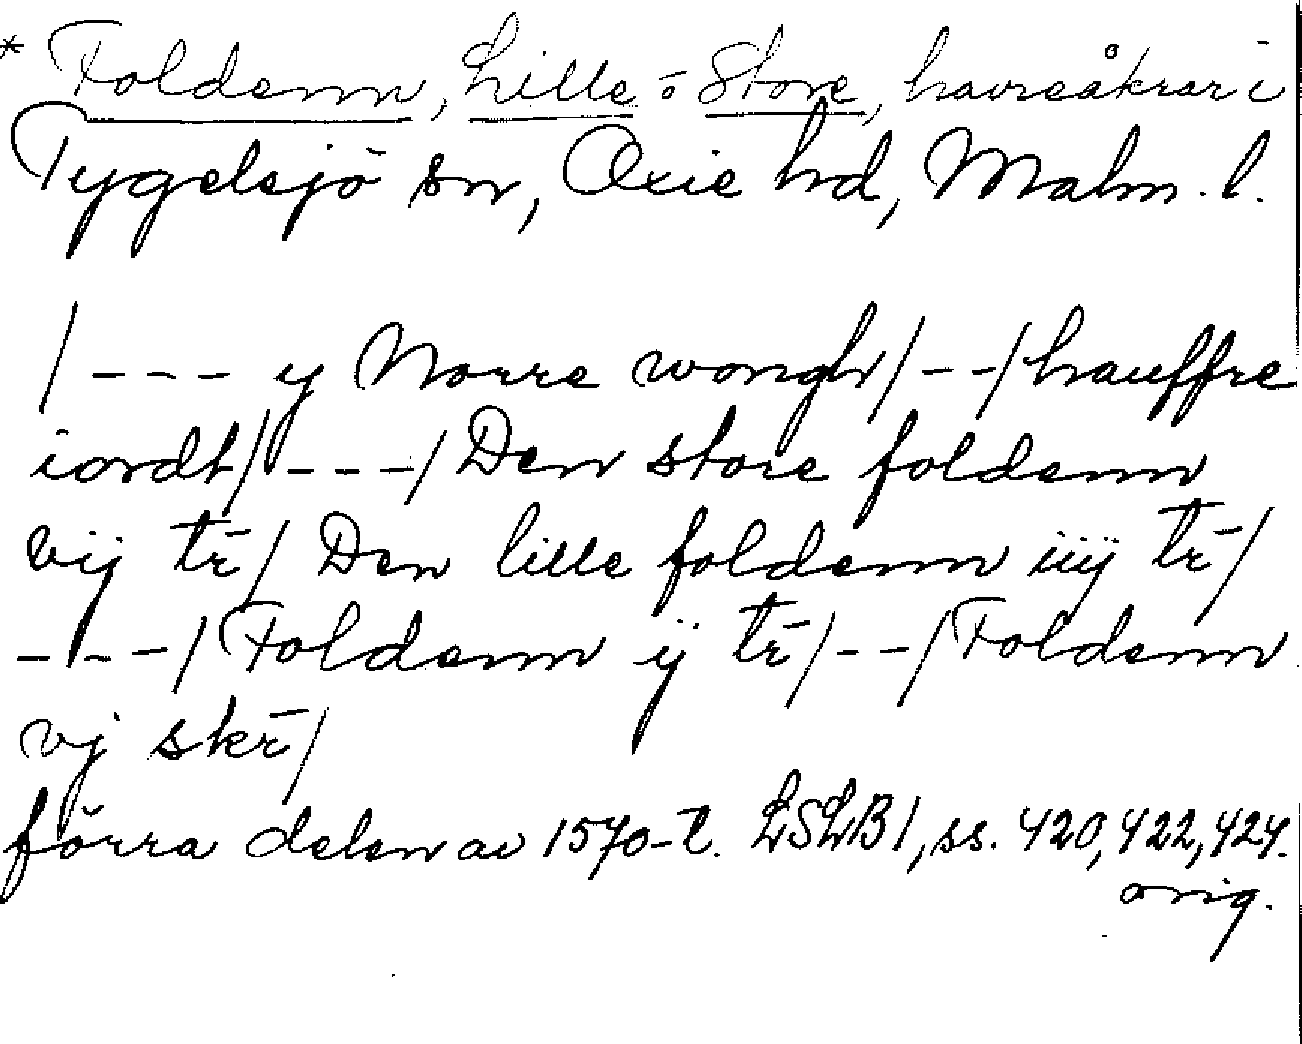 * Foldenn, Lille o Store, havreåkrar i
Tygelsjö sn, Oxie hd, Malm. l.
/--- y Norre wongh/--/hauffre
iordt/---/Den store foldenn
vij tr̄/ Den lille foldenn iiij tr̄/
---/Foldenn ij tr̄/--/Foldenn
vj skr̄/
förra delen av 1570-t. LSLB1, ss. 420, 422, 424.
orig.